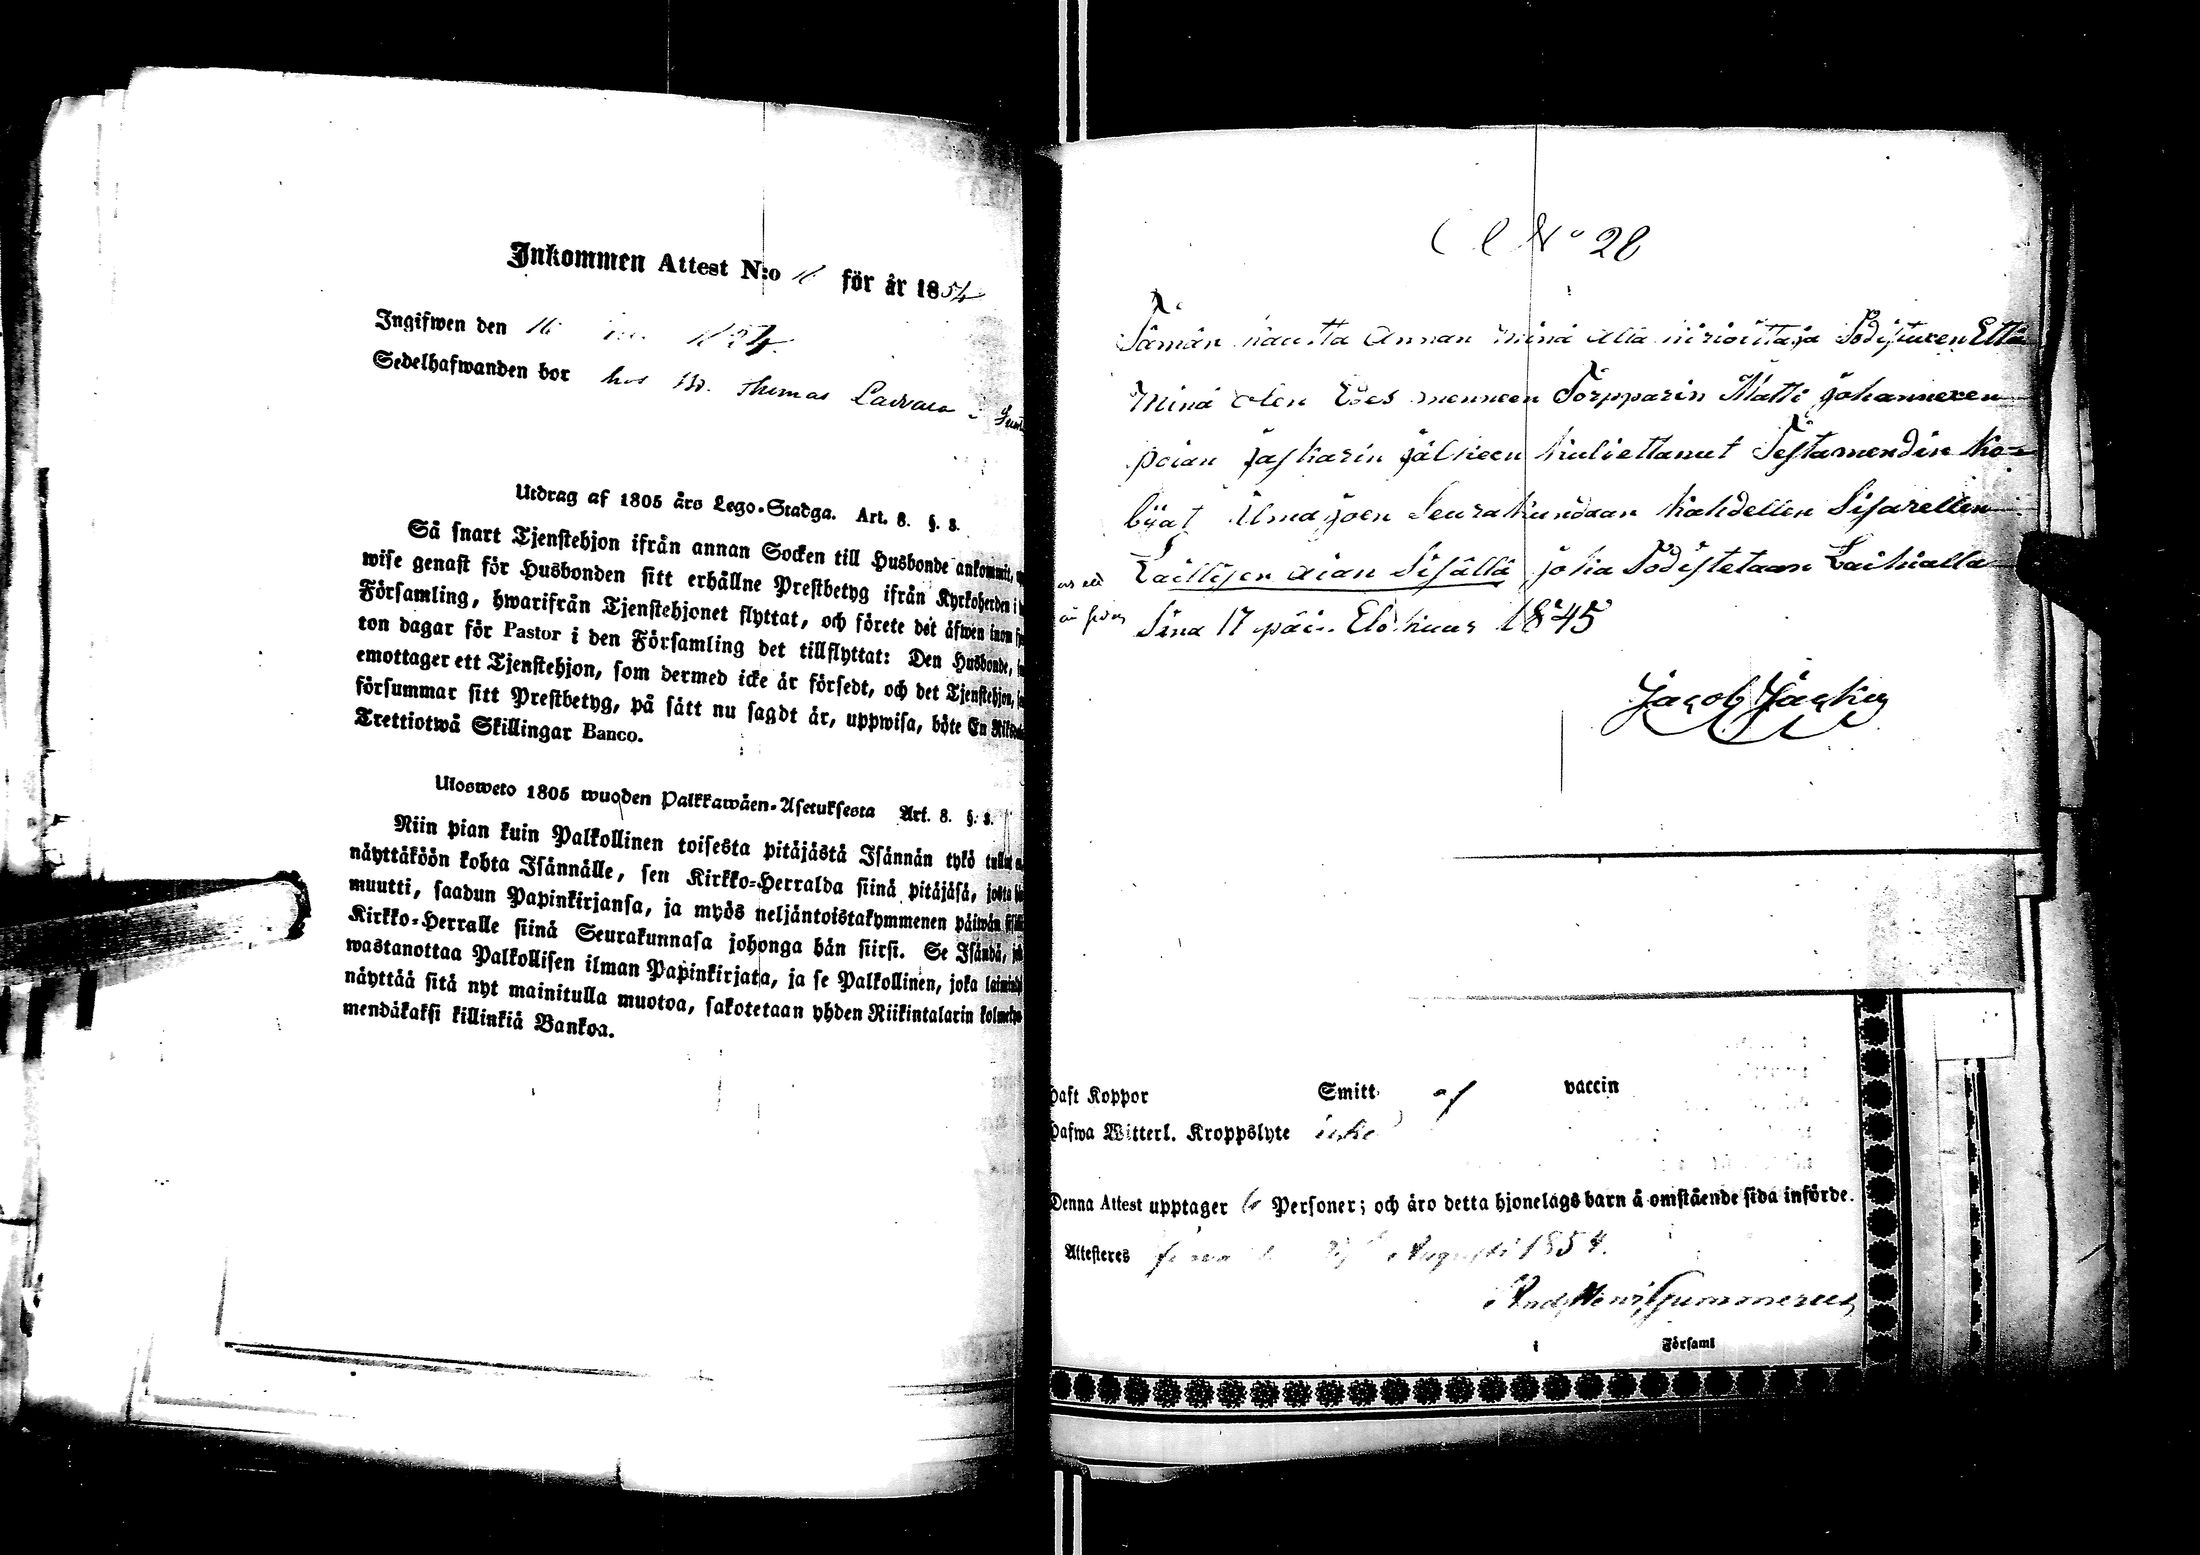 Inkommen Attest N:o för år 1854
Ingifwen den 16 1854.
Sedelhafwanden bor hos Thomas
Utdrag af 1805 års Lego-Stadga. Art. 8. §. 8.
Så snart Tjenstehjon ifrån annan Socken till Husbonde ankommit,
wise genast för Husbonden sitt erhållne Prestbetyg ifrån Kyrkoherden i
Församling, hwarifrån Tjenstehjonet flyttat, och förete det äfwen inom
ton dagar för Pastor i den Församling det tillflyttat: Den Husbonde,
emottager ett Tjenstehjon, som dermed icke är försedt, och det Tjenstehjon,
försummar sitt Prestbetyg, på sätt nu sagdt är, uppwisa, böte En
Trettiotwå Skillingar Banco.
Ulosweto 1805 wuoden Palkkawäen-Asetuksesta Art. 8. §. 8.
Niin pian kuin Palkollinen toisesta pitäjästä Isännän tykö
näyttäköön kohta Isännälle, sen Kirkko-Herralda siinä pitäjäsä,
muutti, saadun Papinkirjansa, ja myös neljäntoistakymmenen päiwän
Kirkko-Herralle siinä Seurakunnasa johonga hän siirsi. Se Isändä,
wastanottaa Palkollisen ilman Papinkirjata, ja se Palkollinen, joka
näyttää sitä nyt mainitulla muotoa, sakotetaan yhden Riikintalarin
mendäkaksi killinkiä Bankoa.
No 28
Tämän kautta Annan minä alla kirioittaja Todisturen Että
Minä olen Edes menneen Torpparin Matti Johannexen
poian Jaskarin jälkeen kuliettanut Testamendin Ko-
biat Ilmajoen Seurakundaan Kahdellen Sisarellen
Laillisen aian Sisällä joka Todistetaan Laihialla
Sinä 17 päiv. Elokuus 1845
Jacob Jäskey
haft Koppor Smitt af vaccin
hafwa Witterl. Kroppslyte icke
Denna Attest upptager 6 Personer; och äro detta hjonelags barn å omstående sida införde.
Attesteres Augusti 1854.
Gummerus
i Församl